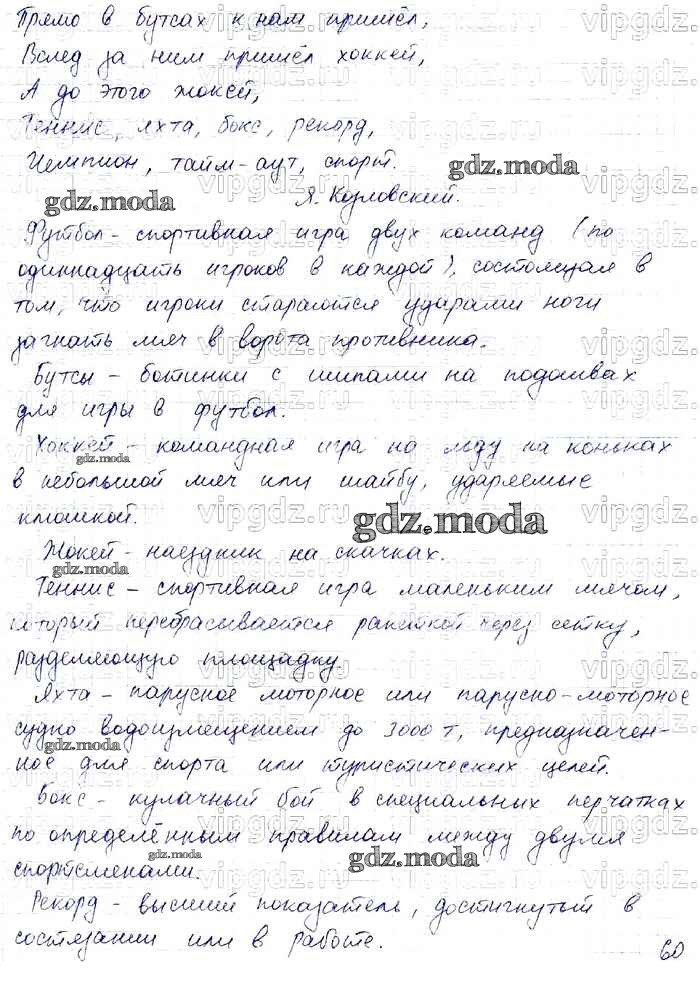 Прямо в бутсах к нам пришёл,
Вслед за ним пришёл хоккей,
А до этого жокей,
Теннис, яхта, бокс, рекорд,
Чемпион, тайм-аут, спорт.
gdz.moda
Я. Козловский.
Футбол - спортивная игра двух команд (по
одиннадцать игроков в каждой), состоящая в
том, что игроки стараются ударами ноги
загнать мяч в ворота противника.
Бутсы - ботинки с шипами на подошвах
для игры в футбол.
Хоккей - командная игра на льду на коньках
в небольшой мяч или шайбу, ударяемые
клюшкой.
gdz.moda
Жокей - наездник на скачках.
Теннис - спортивная игра маленьким мячом,
который перебрасывается ракеткой через сетку,
разделяющую площадку.
Яхта - парусное моторное или парусно-моторное
судно водоизмещением до 3000 т, предназначен-
ное для спорта или туристических целей.
Бокс - кулачный бой в специальных перчатках
по определённым правилам между двумя
спортсменами.
gdz.moda
Рекорд - высший показатель, достигнутый в
состязании или в работе.
60